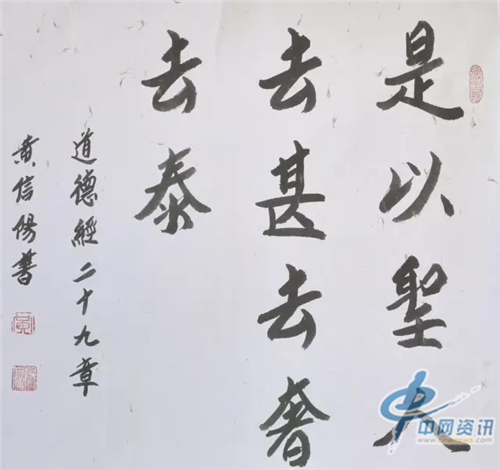 是以聖人
去甚去奢
去泰
道德經二十九章
黄信陽書
中网资讯